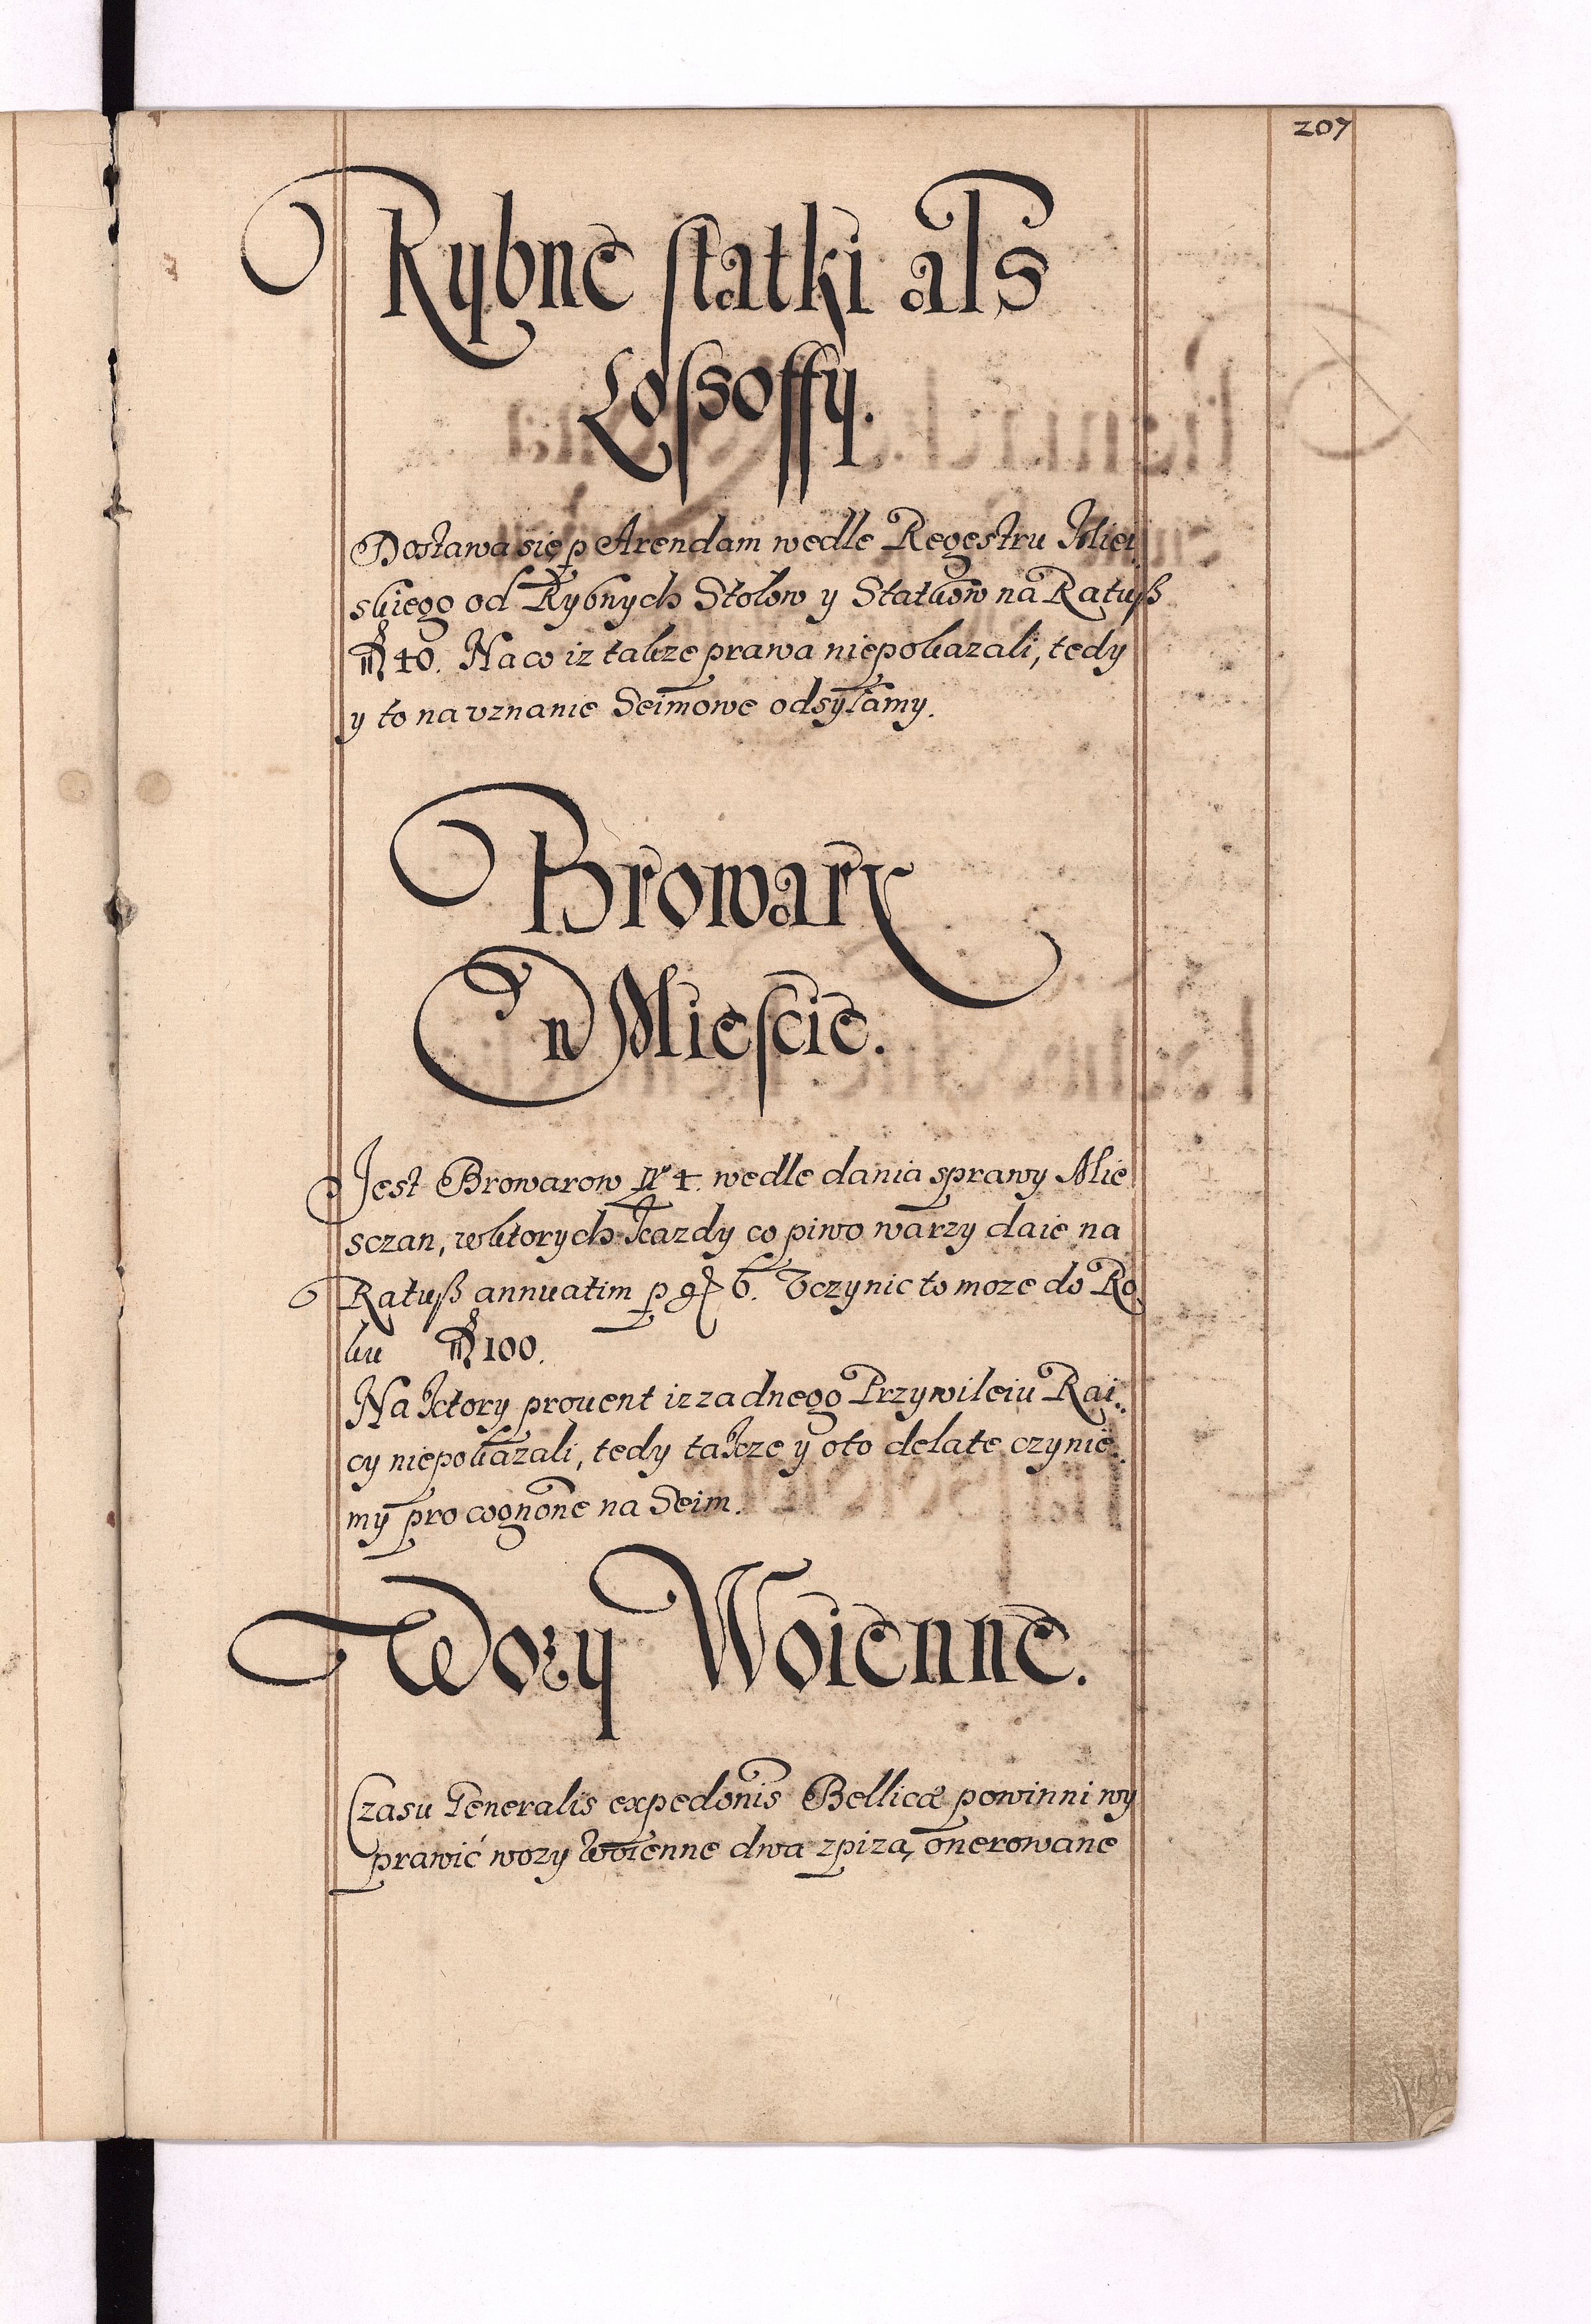 207
Rybne statki als
Lossoffy.
Dostawa się p Arendam wedle Regestru Miei
skiego od Rybnych Stolow y Statkow na Ratuß
fl 40. Naco iz takze prawa niepokazali, tedy
y to na vznanie Seimowe odsyłamy.
Browary
w Miescie.
Jest Browarow Nr 4. wedle dania sprawy Mie
sczan, w ktorych kazdy co piwo warzy daie na
Ratuß annuatim p gr 6. Vczynic to moze do Ro
ku fl 100.
Na ktory prouent iz zadnego Przywileiu Rai
cy niepokazali, tedy takze y oto delate czynie
my pro cognone na Seim.
Wozy Woienne.
Czasu Generalis expedonis Bellicæ powinni wy
prawić wozy Woienne dwa zpizą onerowane